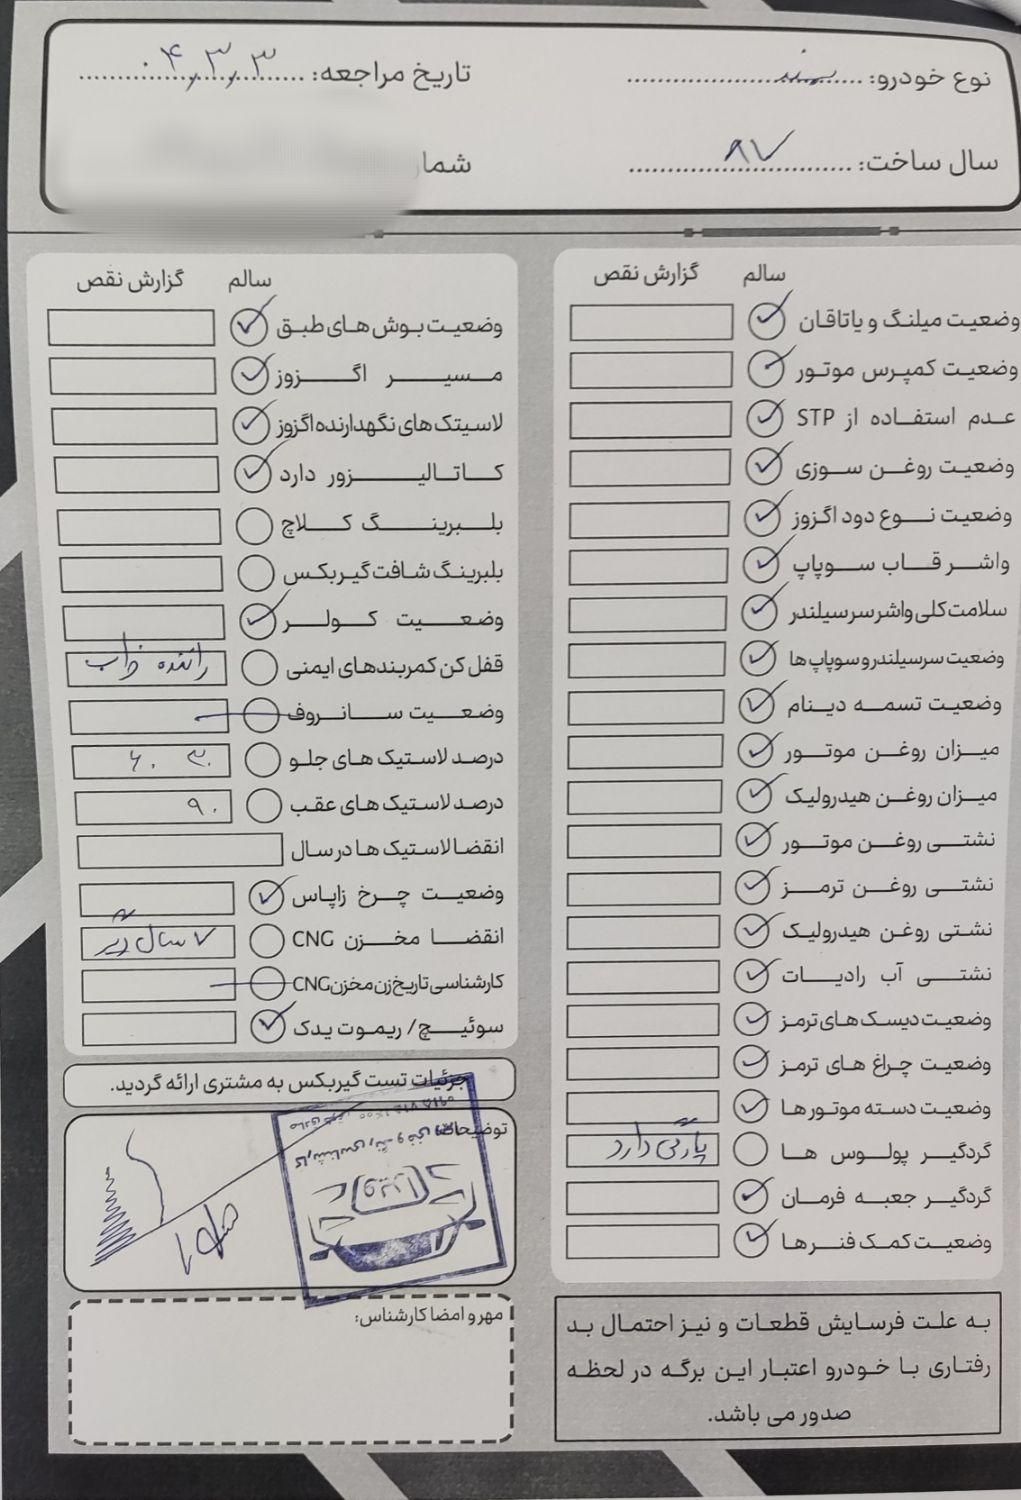 نوع خودرو: سمند
تاریخ مراجعه: ۰۴,۳,۳
سال ساخت: ۸۷
شمار
سالم گزارش نقص
وضعیت میلنگ و یاتاقان
وضعیت کمپرس موتور
عدم استفاده از STP
وضعیت روغن سوزی
وضعیت نوع دود اگزوز
واشر قاب سوپاپ
سلامت کلی واشر سر سیلندر
وضعیت سرسیلندر و سوپاپ ها
وضعیت تسمه دینام
میزان روغن موتور
میزان روغن هیدرولیک
نشتی روغن موتور
نشتی روغن ترمز
نشتی روغن هیدرولیک
نشتی آب رادیات
وضعیت دیسک های ترمز
وضعیت چراغ های ترمز
وضعیت دسته موتورها
گردگیر پولوس ها پارگی دارد
گردگیر جعبه فرمان
وضعیت کمک فنرها
به علت فرسایش قطعات و نیز احتمال بد
رفتاری با خودرو اعتبار این برگه در لحظه
صدور می باشد.
سالم گزارش نقص
وضعیت بوش های طبق
مسیر اگزوز
لاسیتک های نگهدارنده اگزوز
کاتالیزور دارد
بلبرینگ کلاچ
بلبرینگ شافت گیربکس
وضعیت کولر
قفل کن کمربندهای ایمنی راننده خراب
وضعیت سانروف
درصد لاستیک های جلو ۳۰ ۶۰
درصد لاستیک های عقب ۹۰
انقضا لاستیک ها در سال
وضعیت چرخ زاپاس
انقضا مخزن CNG ۷ سال دیگر
کارشناسی تاریخ زن مخزن CNG
سوئیچ/ریموت یدک
جزئیات تست گیربکس به مشتری ارائه گردید.
توضیحات:
کارشناسی رنگ و فنی
ویرا
مهر و امضا کارشناس: